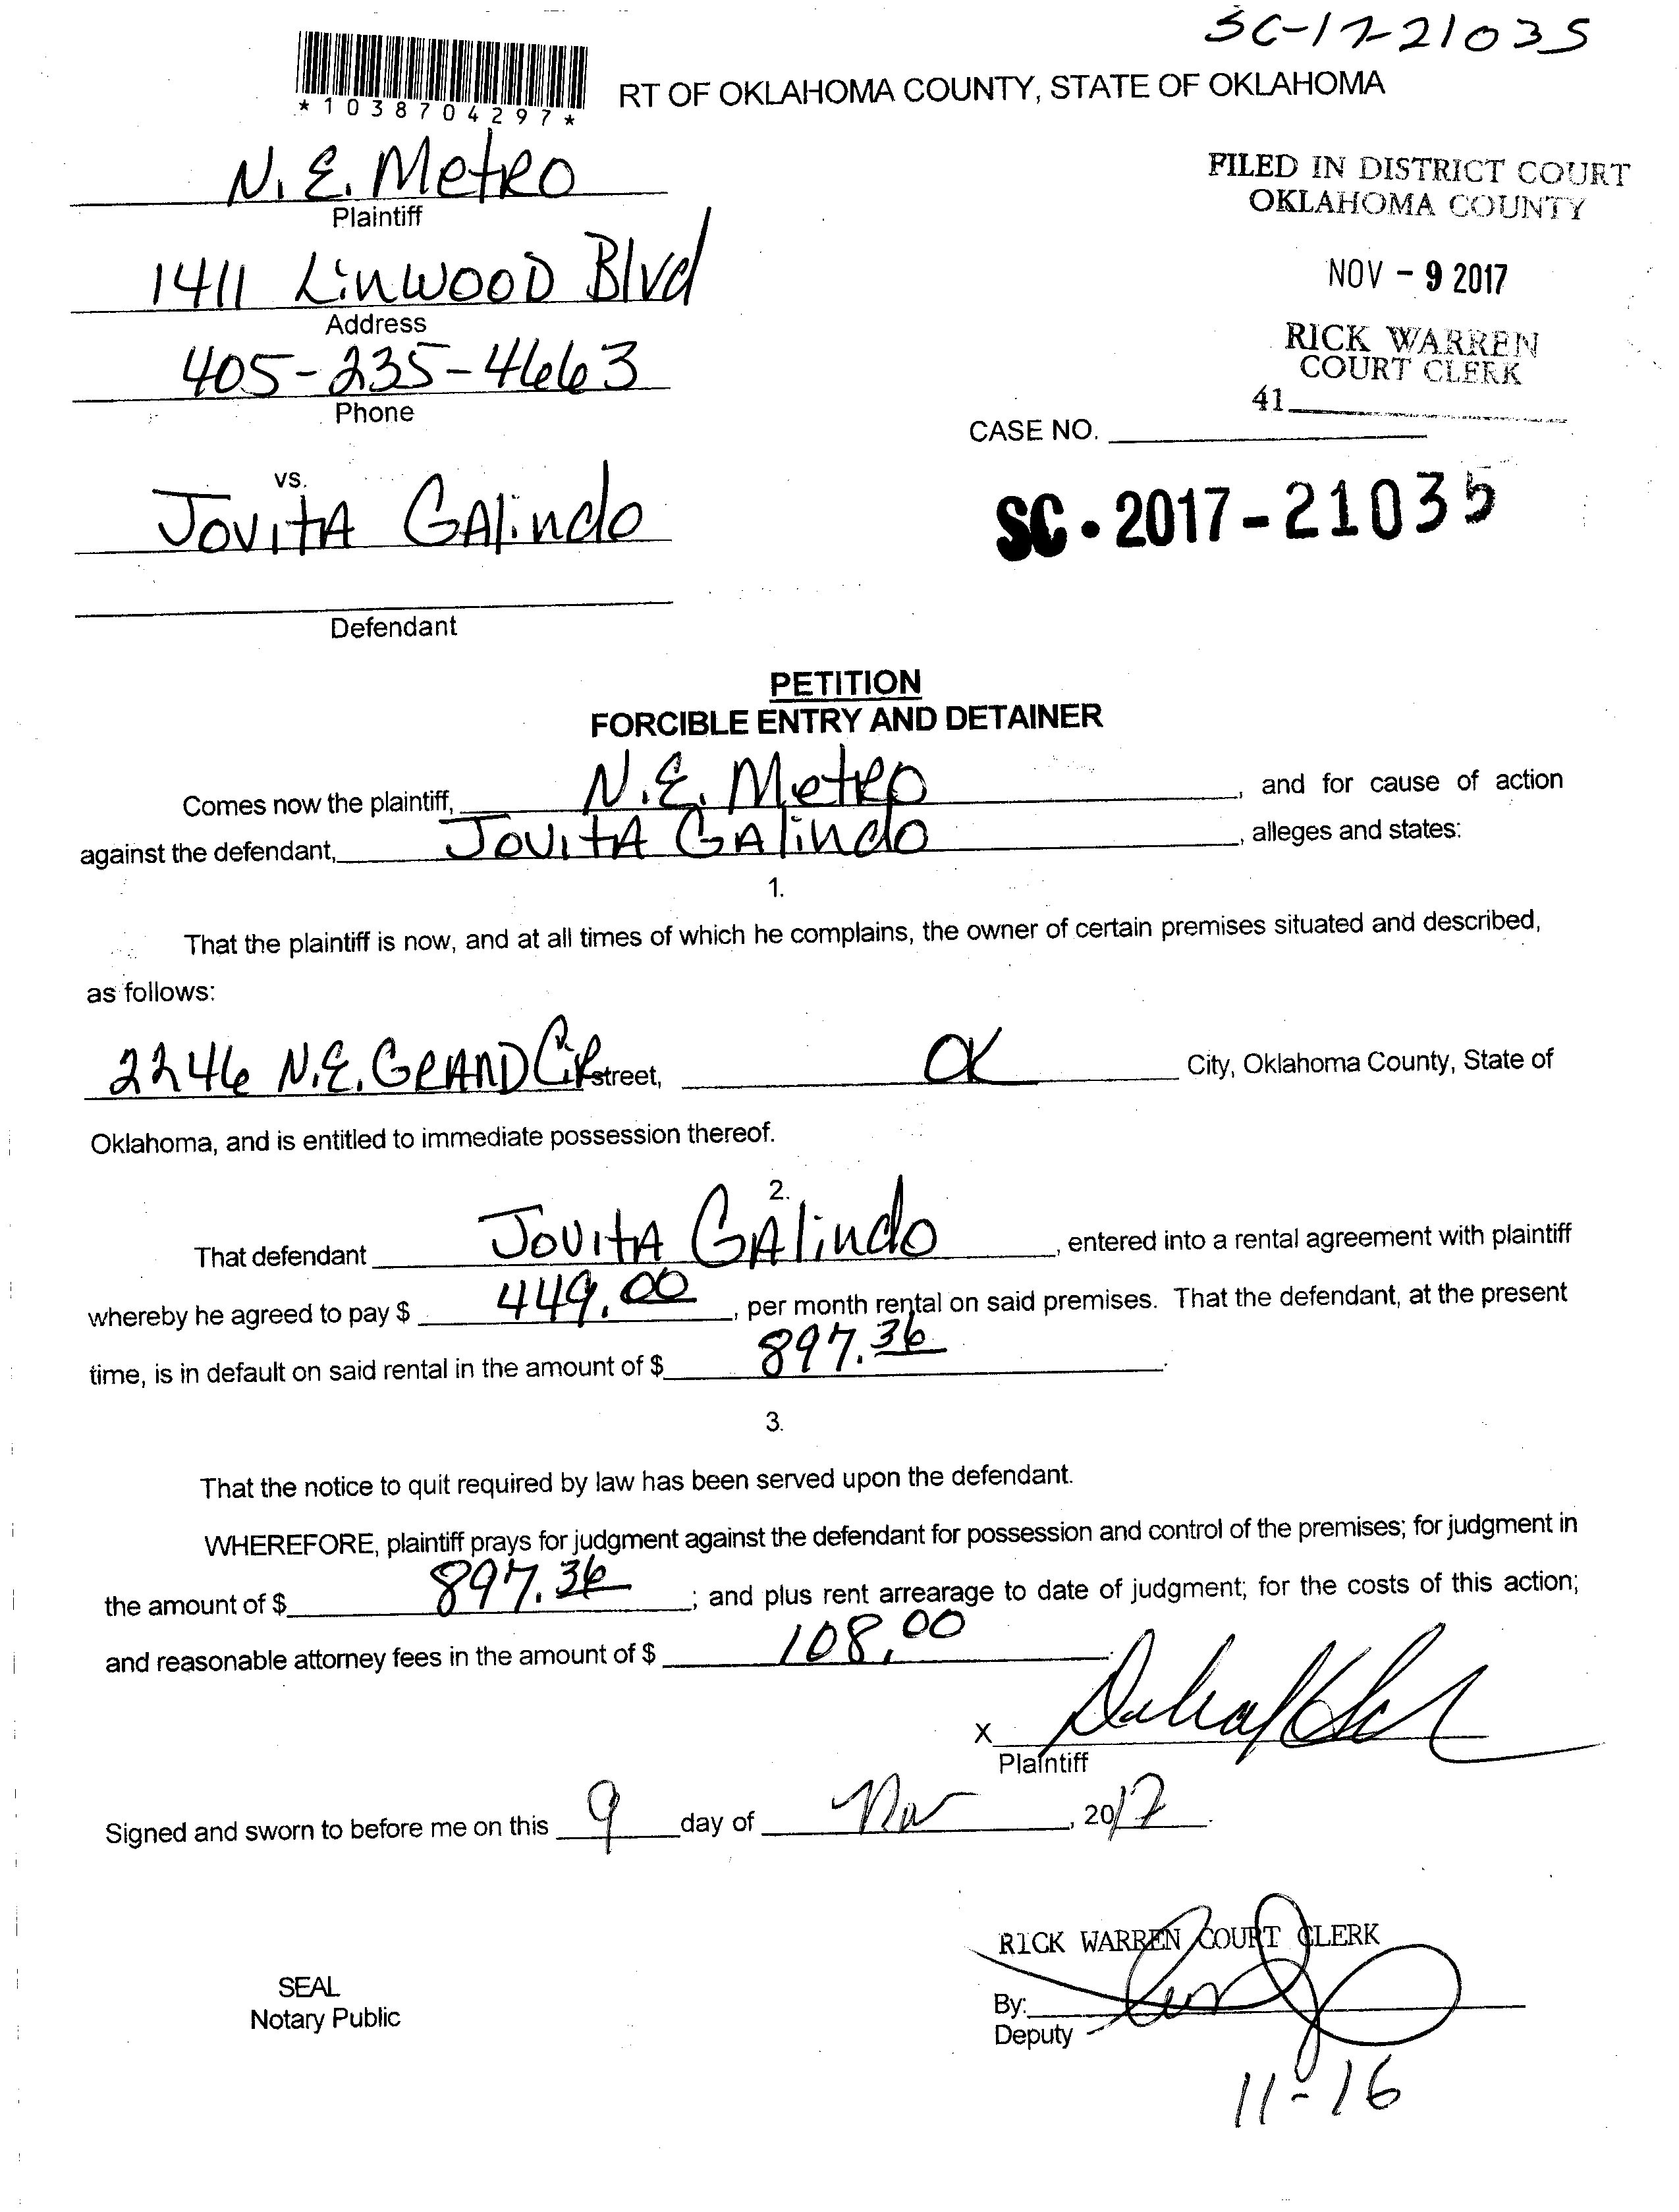 SC-17-21035
*1038704297*
RT OF OKLAHOMA COUNTY, STATE OF OKLAHOMA
N.E. Metro
Plaintiff
FILED IN DISTRICT COURT
OKLAHOMA COUNTY
1411 Linwood Blvd
Address
NOV - 9 2017
405-235-4663
Phone
RICK WARREN
COURT CLERK
41
CASE NO.
vs.
Jovita Galindo
SC-2017-21035
Defendant
PETITION
FORCIBLE ENTRY AND DETAINER
Comes now the plaintiff, N.E. Metro, and for cause of action
against the defendant, Jovita Galindo, alleges and states:
1.
That the plaintiff is now, and at all times of which he complains, the owner of certain premises situated and described,
as follows:
2246 N.E. Grand Cir street, OK City, Oklahoma County, State of
Oklahoma, and is entitled to immediate possession thereof.
2.
That defendant Jovita Galindo, entered into a rental agreement with plaintiff
whereby he agreed to pay $ 449.00, per month rental on said premises. That the defendant, at the present
time, is in default on said rental in the amount of $ 897.36.
3.
That the notice to quit required by law has been served upon the defendant.
WHEREFORE, plaintiff prays for judgment against the defendant for possession and control of the premises; for judgment in
the amount of $ 897.36; and plus rent arrearage to date of judgment; for the costs of this action;
and reasonable attorney fees in the amount of $ 108.00.
X
Plaintiff
Signed and sworn to before me on this 9 day of Nov, 2017.
RICK WARREN COURT CLERK
SEAL
Notary Public
By:
Deputy
11-16